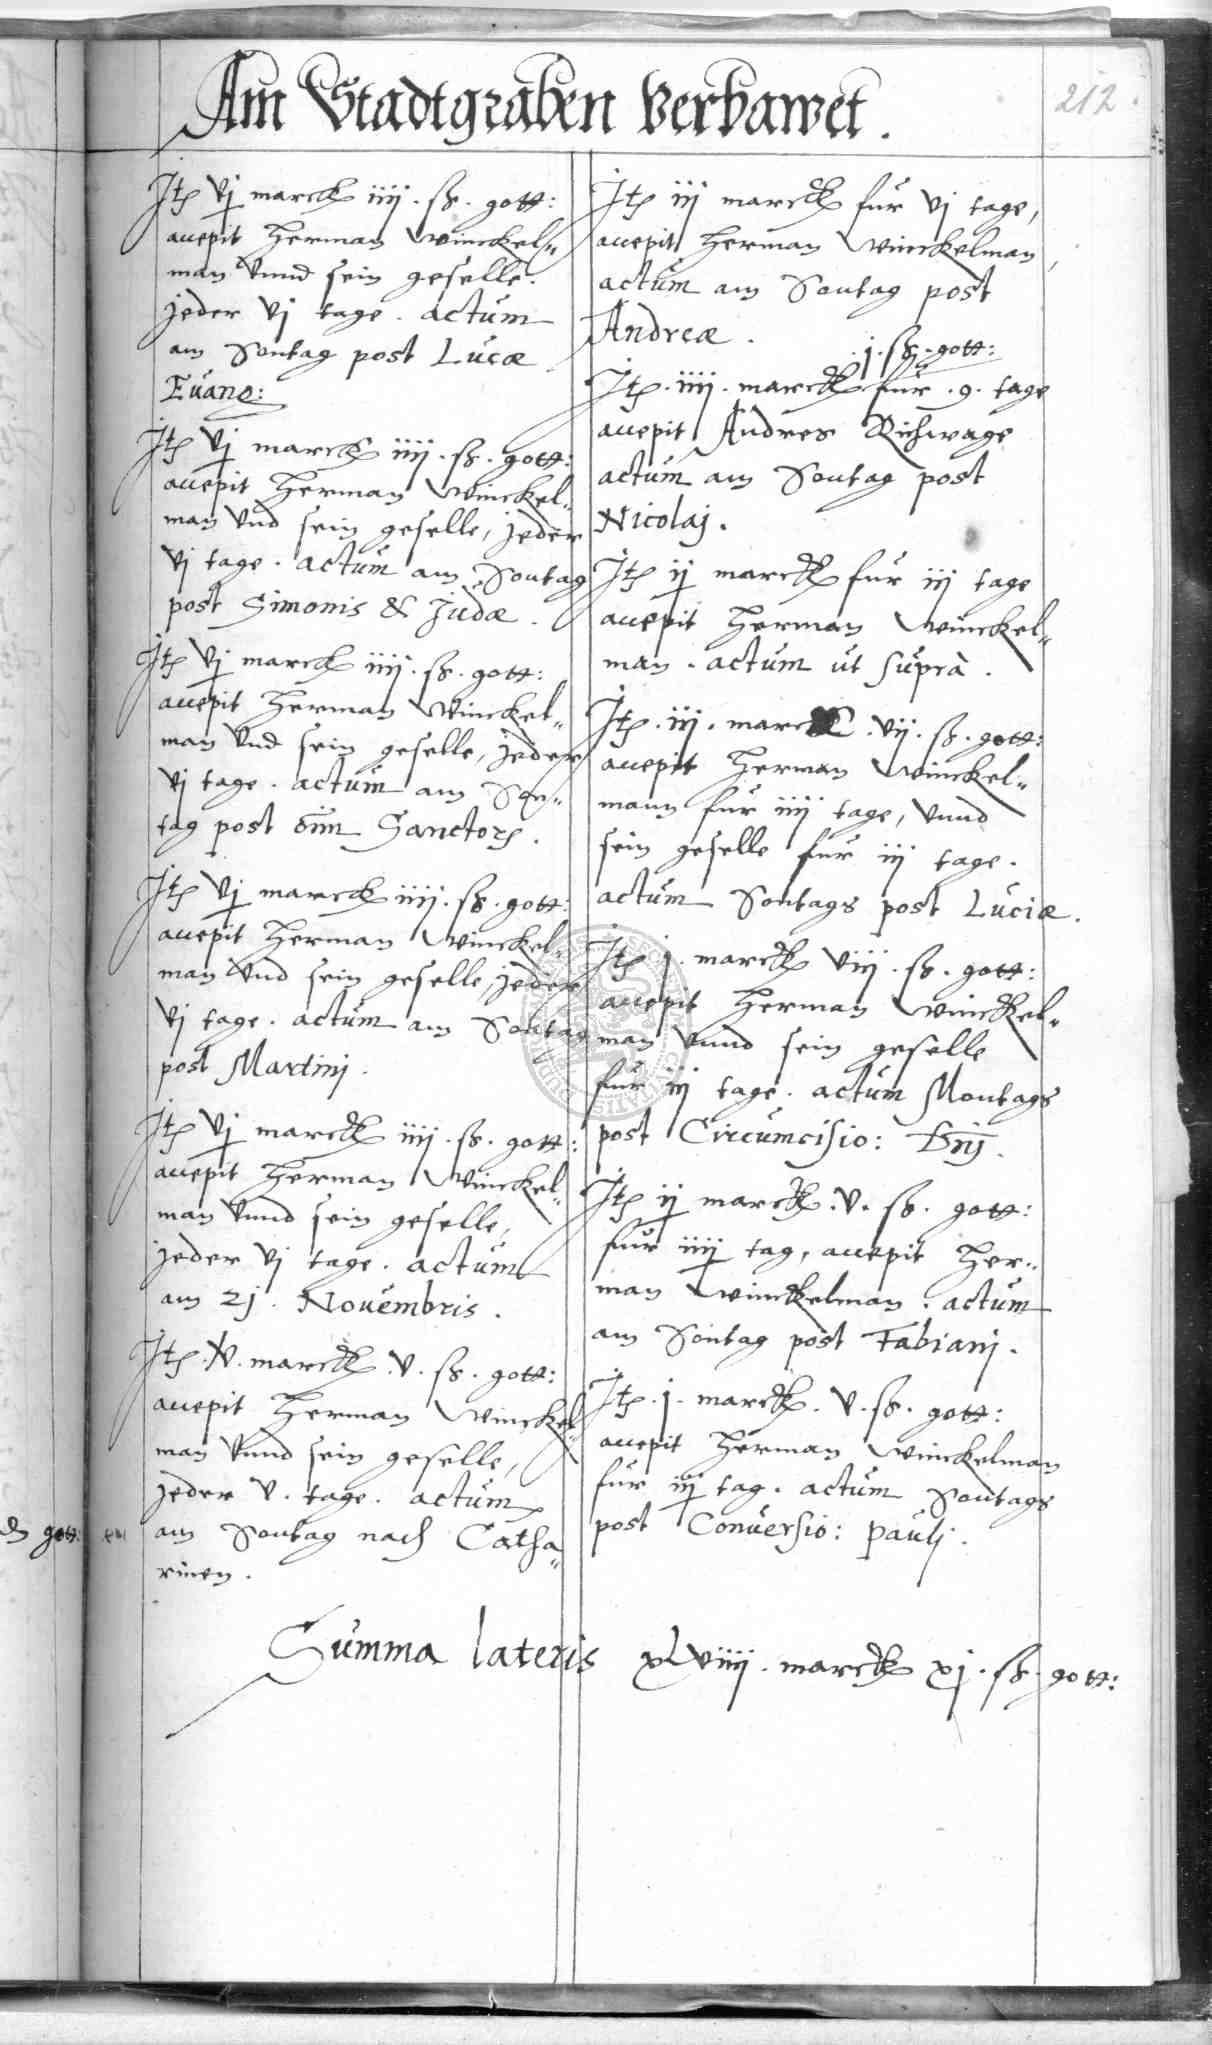 Am Stadtgraben verbawet.
212.
Itē vj marck iiij. ß. gott:
accepit Herman Winckel-
man vnnd sein geselle.
jeder vj tage. actum
am Sontag post Lucæ
Euang:
Itē vj marck iiij. ß. gott:
accepit Herman Winckel-
man vnd sein geselle, jeder
vj tage. actum am Sontag
post Simonis & Judæ.
Itē vj marck iiij. ß. gott:
accepit Herman Winckel-
man vnd sein geselle, jeder
vj tage. actum am Son-
tag post oīm Sanctorū.
Itē vj marck iiij. ß. gott:
accepit Herman Winckel-
man vnd sein geselle, jeder
vj tage. actum am Sontag
post Martinj.
Itē vj marck iiij. ß. gott:
accepit Herman Winckel-
man vnnd sein geselle,
jeder vj tage. actum
am 21. Nouembris.
Itē. v. marck. v. ß. gott:
accepit Herman Winckel-
man vnnd sein geselle,
jeder v. tage. actum
am Sontag nach Catha-
rinen.
Itē iij marck fur vj tage,
accepit Herman Winckelman,
actum am Sontag post
Andreæ.
.j. ß. gott:
Itē. iiij. marck fur .9. tage
accepit Andres Richwage
actum am Sontag post
Nicolaj.
Itē ij marck fur iij tage
accepit Herman Winckel-
man. actum ut supra.
Itē. iij. marck .vij. ß. gott:
accepit Herman Winckel-
mann fur iiij tage, vnnd
sein geselle fur iij tage.
actum Sontags post Luciæ.
Itē j. marck viij. ß. gott:
accepit Herman Winckel-
man vnnd sein geselle
fur iij tage. actum Montags
post Circumcisio: Dnj.
Itē ij marck. v. ß. gott:
fur iiij tag, accepit Her-
man Winckelman. actum
am Sontag post Fabianj.
Itē. j. marck. v. ß. gott:
accepit Herman Winckelman
fur iij tag. actum Sontags
post Conuersio: Paulj.
Summa lateris xlviiij. marck xj. ß. gott:
gott: